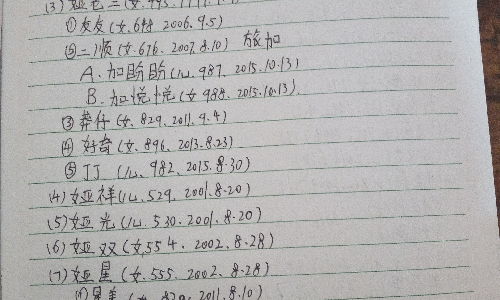 ①友友(女.698 2006.9.5)
②二顺(女.676.2007.8.10) 旅加
A.加盼盼(儿.987.2015.10.13)
B.加悦悦(女 988.2015.10.13)
③莽仔(女.829.2011.9.4)
④好奇(女.896.2013.8.23)
⑤丁丁(儿.982.2015.8.30)
(4)娅祥(儿.529.2001.8.20)
(5)娅光(儿.530.2001.8.20)
(6)娅双(女.554.2002.8.28)
(7)娅星(女.555.2002.8.28)